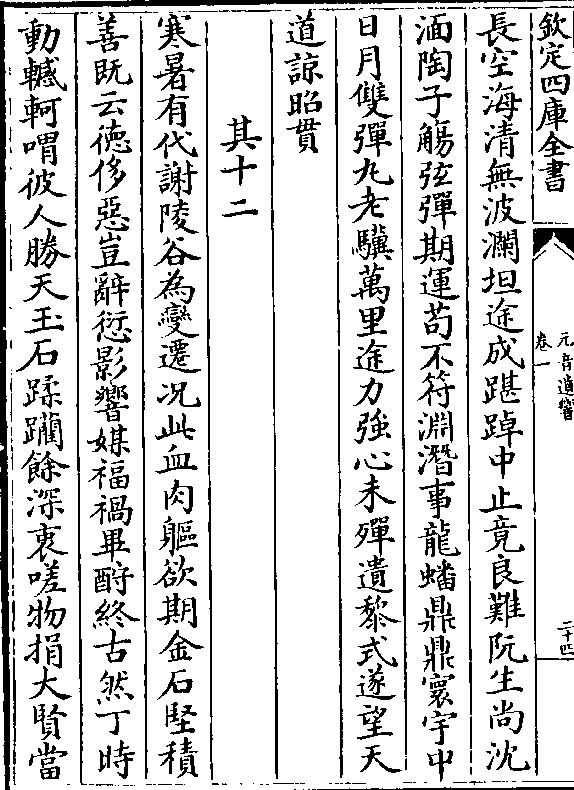 欽定四庫全書
元音遺響
卷一
二十四
長空海清無波瀾坦途成踸踔中止竟良難阮生尚沈
湎陶子觴弦彈期運苟不符淵潛事龍蟠鼎鼎寰宇中
日月雙彈丸老驥萬里途力強心未殫遺黎式遂望天
道諒昭貫
其十二
寒暑有代謝陵谷為變遷况此血肉軀欲期金石堅積
善既云徳侈惡豈辭愆影響媒福禍畢酧終古然丁時
動轗軻喟彼人勝天玉石蹂躪餘深衷嗟物捐大賢當